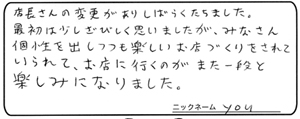 店長さんの変更がありしばらくたちました。
最初は少しさびしく思いましたが、みなさん
個性を出しつつも楽しいお店づくりをされて
いられて、お店に行くのがまた一段と
楽しみになりました。
ニックネーム you